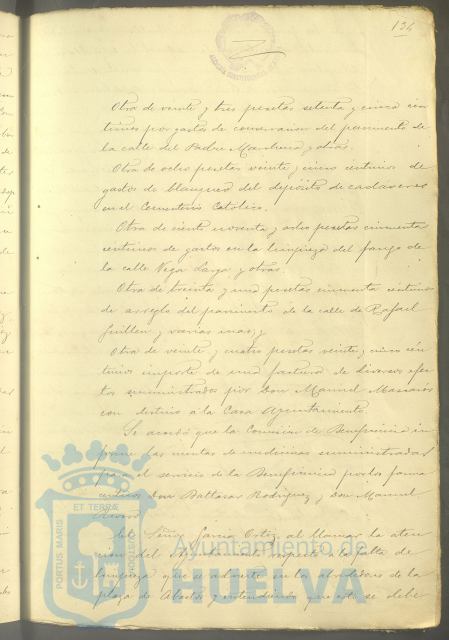 134
Otra de veinte y tres pesetas setenta y cinco cén
timos por gastos de conservación del pavimento de
la calle del Padre Marchena y otras.
Otra de ocho pesetas veinte y cinco céntimos de
gastos de blanqueo del depósito de cadáveres
en el Cementerio Católico.
Otra de ciento noventa y ocho pesetas cincuenta
céntimos de gastos en la limpieza del fango de
la calle Vega Larga y otras.
Otra de treinta y una pesetas cincuenta céntimos
de arreglo del pavimento de la calle de Rafael
Guillen y varias mas, y
Otra de veinte y cuatro pesetas veinte y cinco cén
timos importe de una factura de diversos efec
tos suministrados por Don Manuel
con destino á la Casa Ayuntamiento.
Se acordó que la Comisión de Beneficencia in
forme las cuentas de medicinas suministradas
para el servicio de la Beneficencia por los farma
céuticos Don Baltasar Rodriguez y Don Manuel
del Señor Garcia Ortiz al llamar la aten
ción del Ayuntamiento respecto á la falta de
limpieza que se advierte en los alrededores de la
plaza de Abastos y entendiendo que esto se debe
PORTUS MARIS
ET TERRÆ
CUSTODIA
Ayuntamiento de
HUELVA